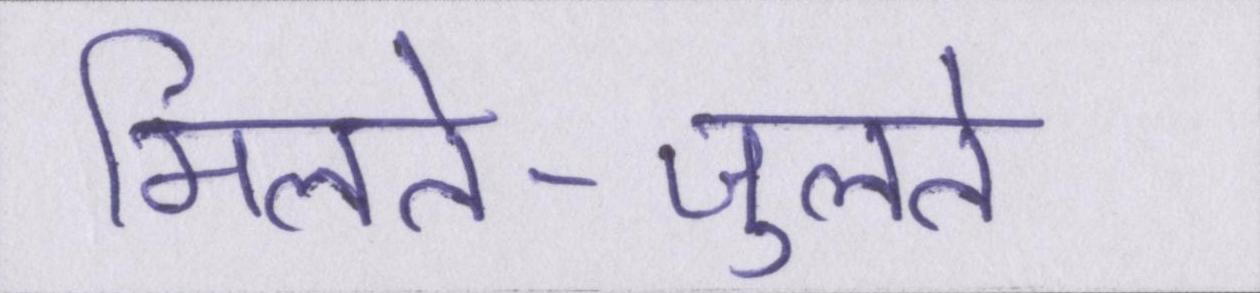 मिलते-जुलते